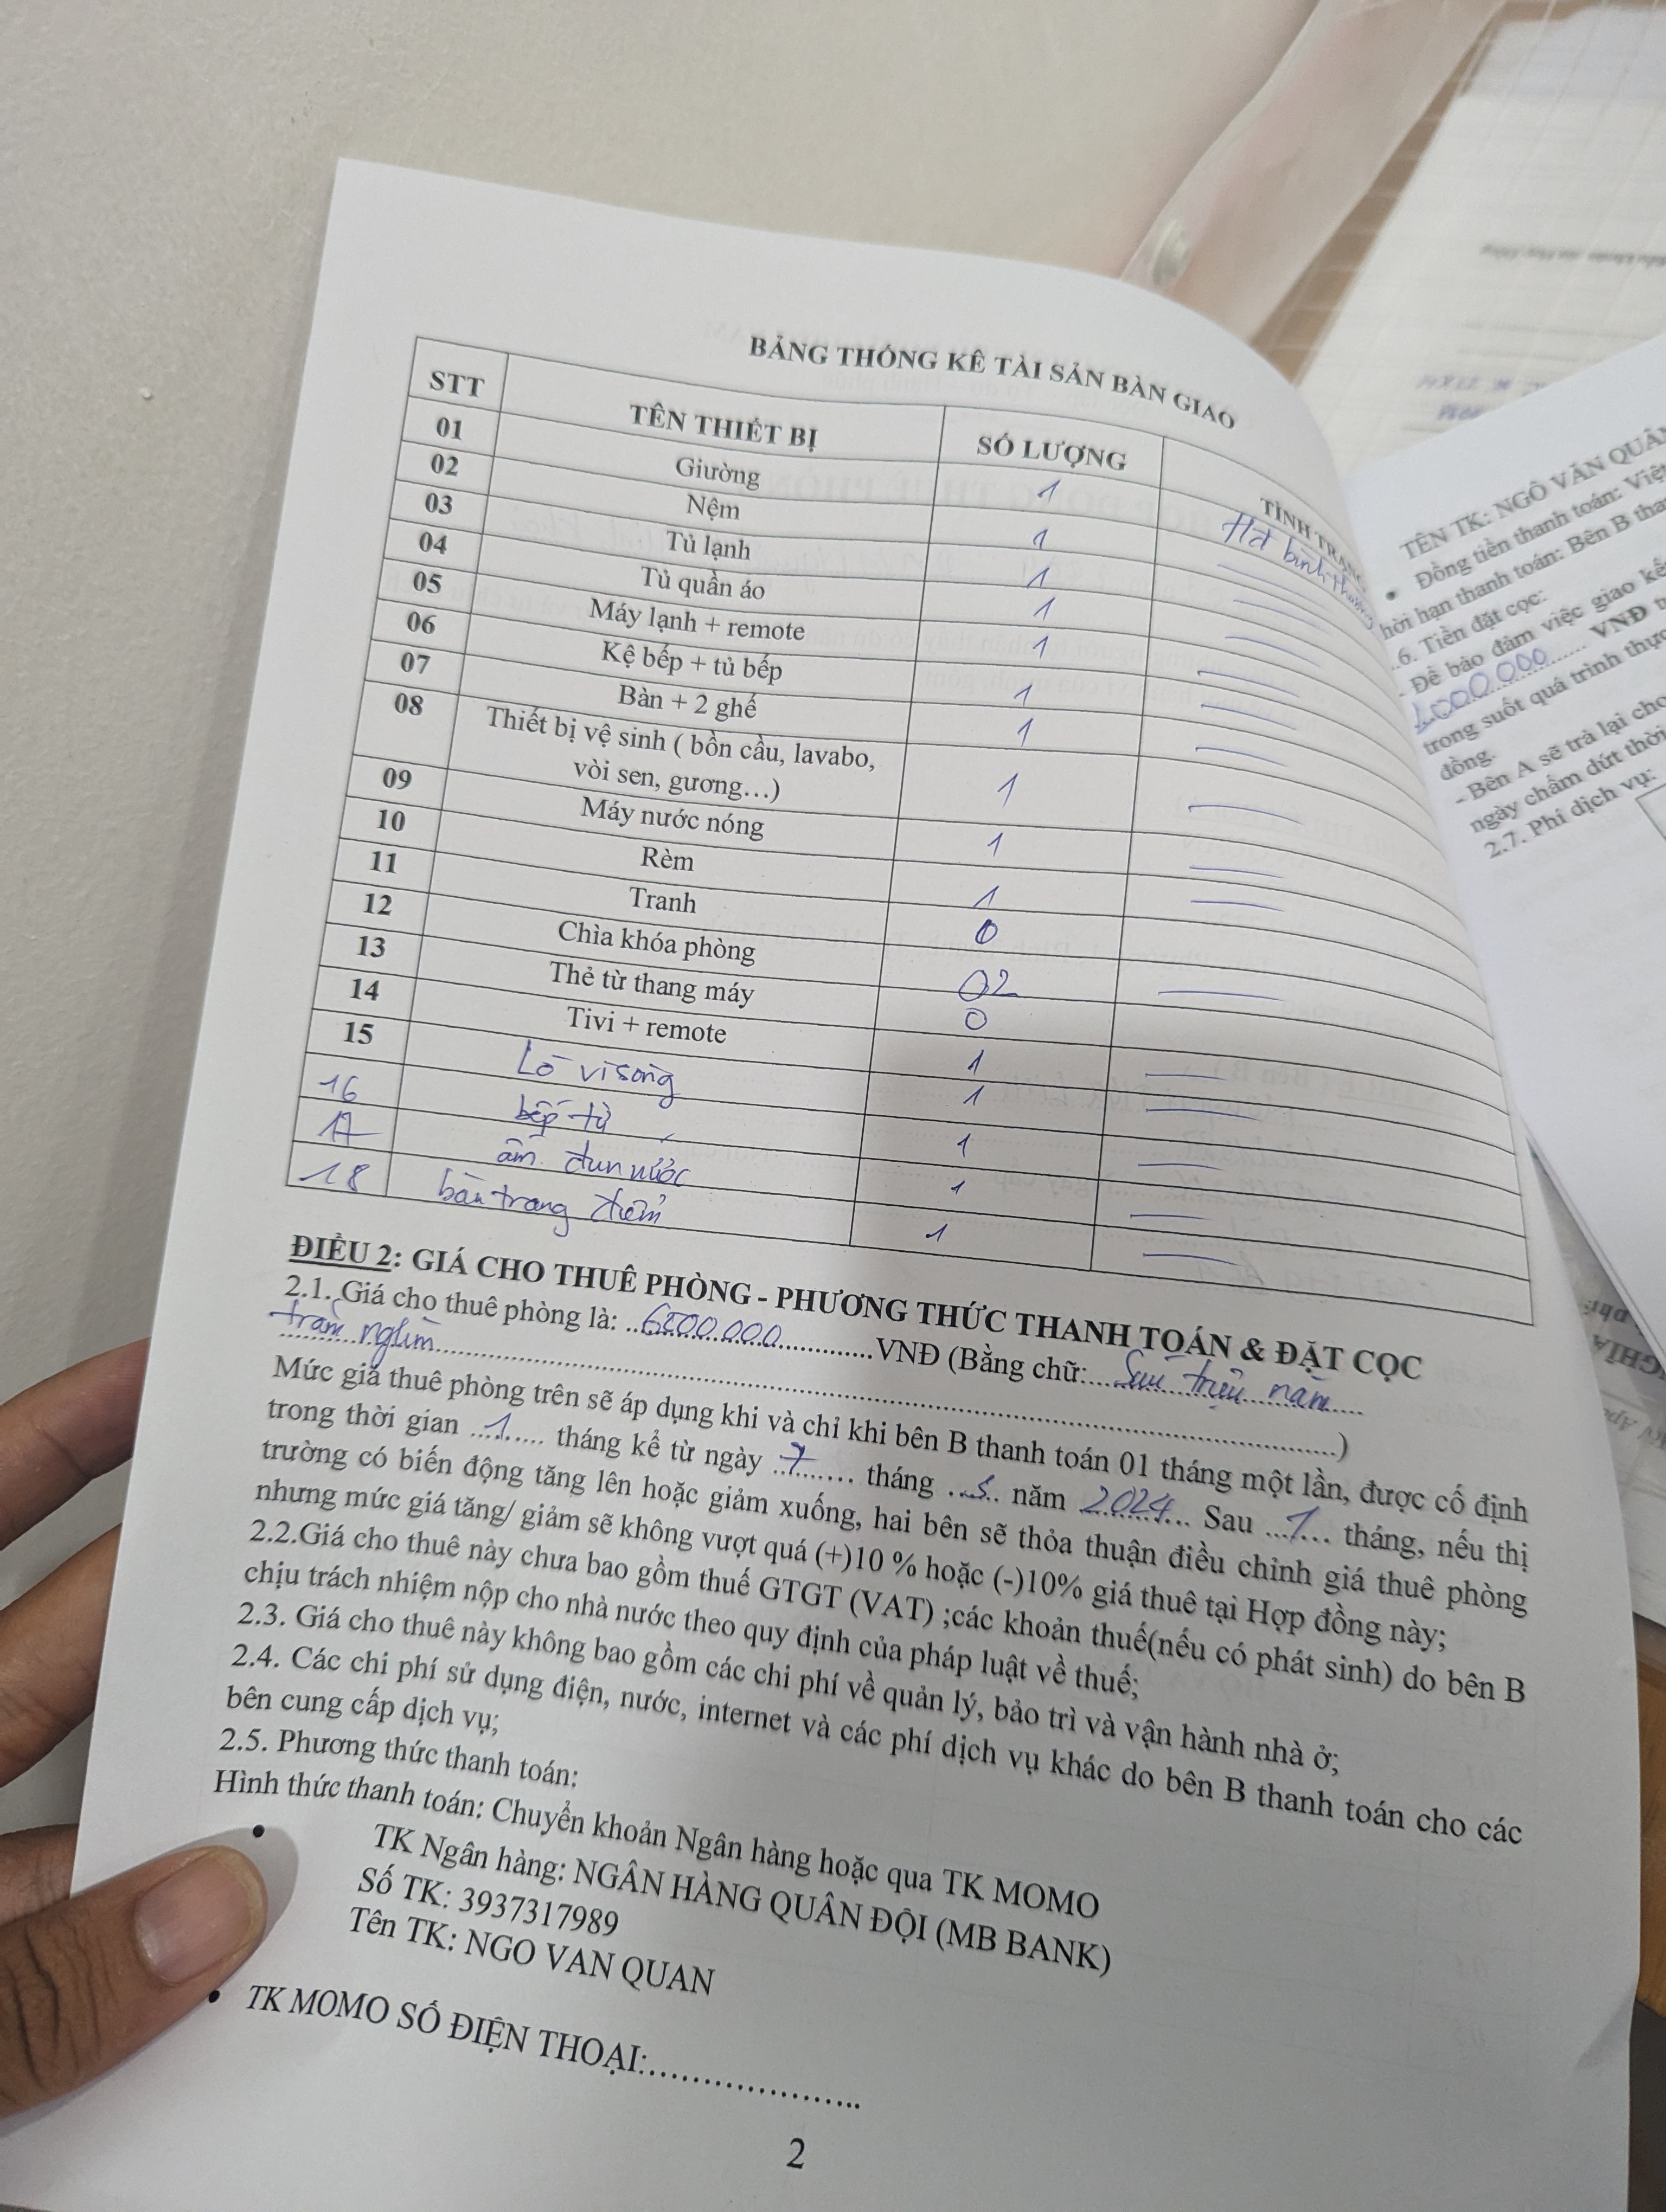 BẢNG THỐNG KÊ TÀI SẢN BÀN GIAO
STT TÊN THIẾT BỊ SỐ LƯỢNG TÌNH TRẠNG
01 Giường 1 Hđ bình thường
02 Nệm 1
03 Tủ lạnh 1
04 Tủ quần áo 1
05 Máy lạnh + remote 1
06 Kệ bếp + tủ bếp 1
07 Bàn + 2 ghế 1
08 Thiết bị vệ sinh ( bồn cầu, lavabo,
vòi sen, gương…) 1
09 Máy nước nóng 1
10 Rèm 1
11 Tranh 0
12 Chìa khóa phòng 02
13 Thẻ từ thang máy 0
14 Tivi + remote 1
15 Lò vi sóng 1
16 bếp từ 1
17 ấm đun nước 1
18 bàn trang điểm 1
ĐIỀU 2: GIÁ CHO THUÊ PHÒNG - PHƯƠNG THỨC THANH TOÁN & ĐẶT CỌC
2.1. Giá cho thuê phòng là: 6500.000 VNĐ (Bằng chữ: Sáu triệu năm
trăm nghìn )
Mức giá thuê phòng trên sẽ áp dụng khi và chỉ khi bên B thanh toán 01 tháng một lần, được cố định
trong thời gian 1 tháng kể từ ngày 7 tháng 5 năm 2024. Sau 1 tháng, nếu thị
trường có biến động tăng lên hoặc giảm xuống, hai bên sẽ thỏa thuận điều chỉnh giá thuê phòng
nhưng mức giá tăng/ giảm sẽ không vượt quá (+)10 % hoặc (-)10% giá thuê tại Hợp đồng này;
2.2.Giá cho thuê này chưa bao gồm thuế GTGT (VAT) ;các khoản thuế(nếu có phát sinh) do bên B
chịu trách nhiệm nộp cho nhà nước theo quy định của pháp luật về thuế;
2.3. Giá cho thuê này không bao gồm các chi phí về quản lý, bảo trì và vận hành nhà ở;
2.4. Các chi phí sử dụng điện, nước, internet và các phí dịch vụ khác do bên B thanh toán cho các
bên cung cấp dịch vụ;
2.5. Phương thức thanh toán:
Hình thức thanh toán: Chuyển khoản Ngân hàng hoặc qua TK MOMO
• TK Ngân hàng: NGÂN HÀNG QUÂN ĐỘI (MB BANK)
Số TK: 3937317989
Tên TK: NGO VAN QUAN
• TK MOMO SỐ ĐIỆN THOẠI:.....................
2
TÊN TK: NGÔ VĂN QUÂN
• Đồng tiền thanh toán: Việt
hời hạn thanh toán: Bên B
.6. Tiền đặt cọc:
- Để bảo đảm việc giao kế
VNĐ
trong suốt quá trình thực
đồng.
- Bên A sẽ trả lại cho
ngày chấm dứt thời
2.7. Phí dịch vụ: